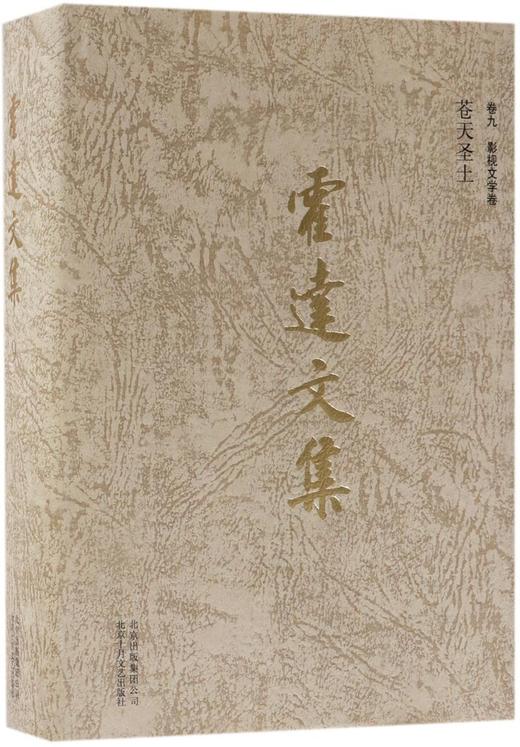 卷九 影视文学卷
苍天圣土
霍達文集
北京出版集团公司
北京十月文艺出版社
霍達文集